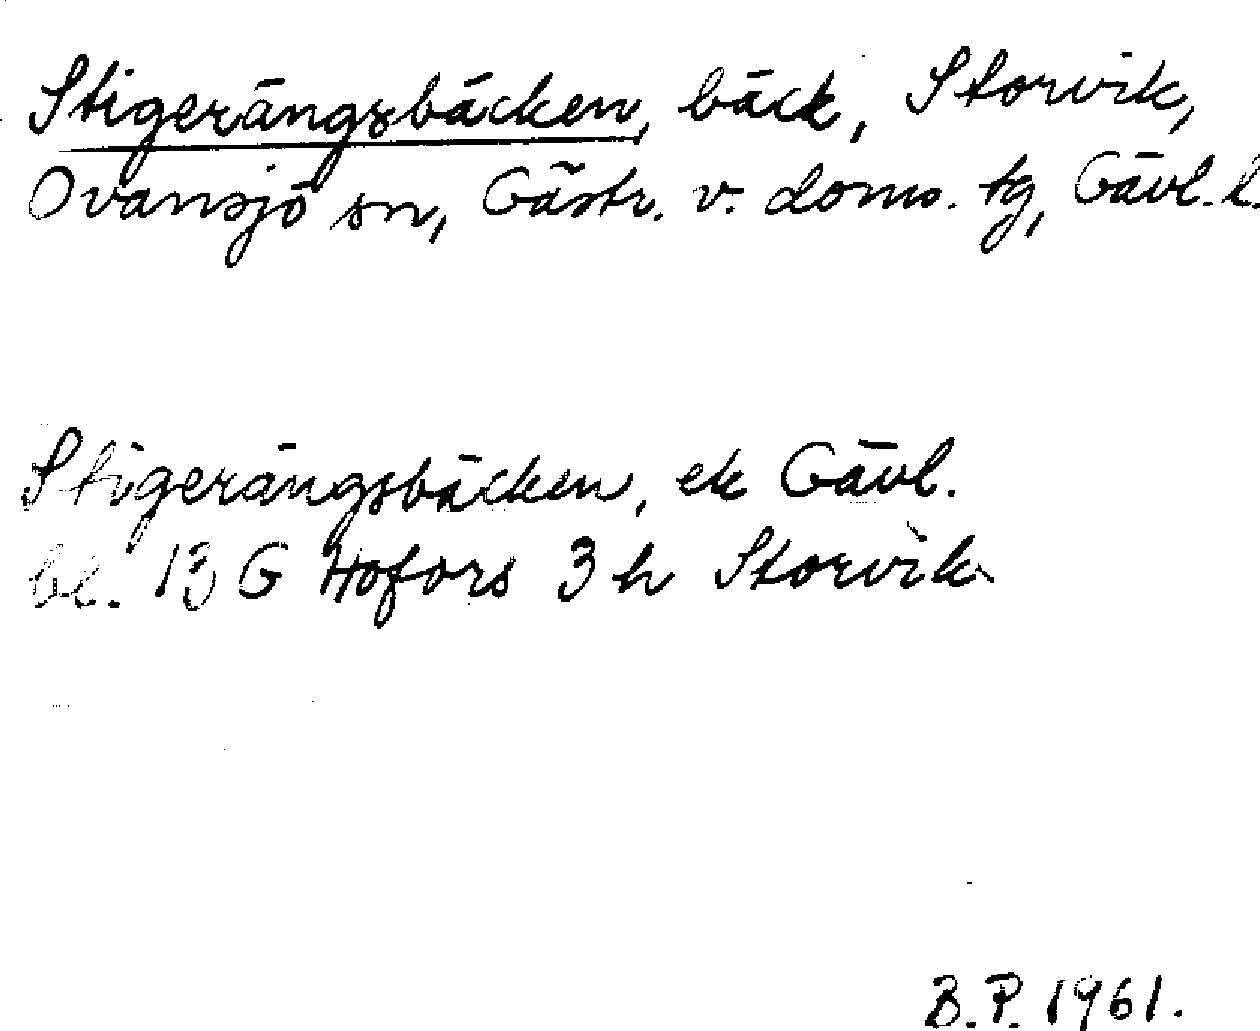 Stigerängsbäcken, bäck, Storvik,
Ovansjö sn, Gästr. v. doms. tg, Gävl. l.
Stigerängsbäcken, ek Gävl.
bl. 13 G Hofors 3 h Storvik
B.P. 1961.